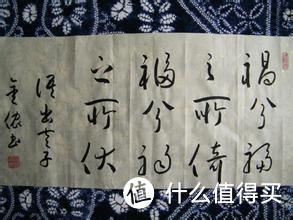 禍兮福
之所倚
福兮禍
之所伏
语出老子
书
值 什么值得买